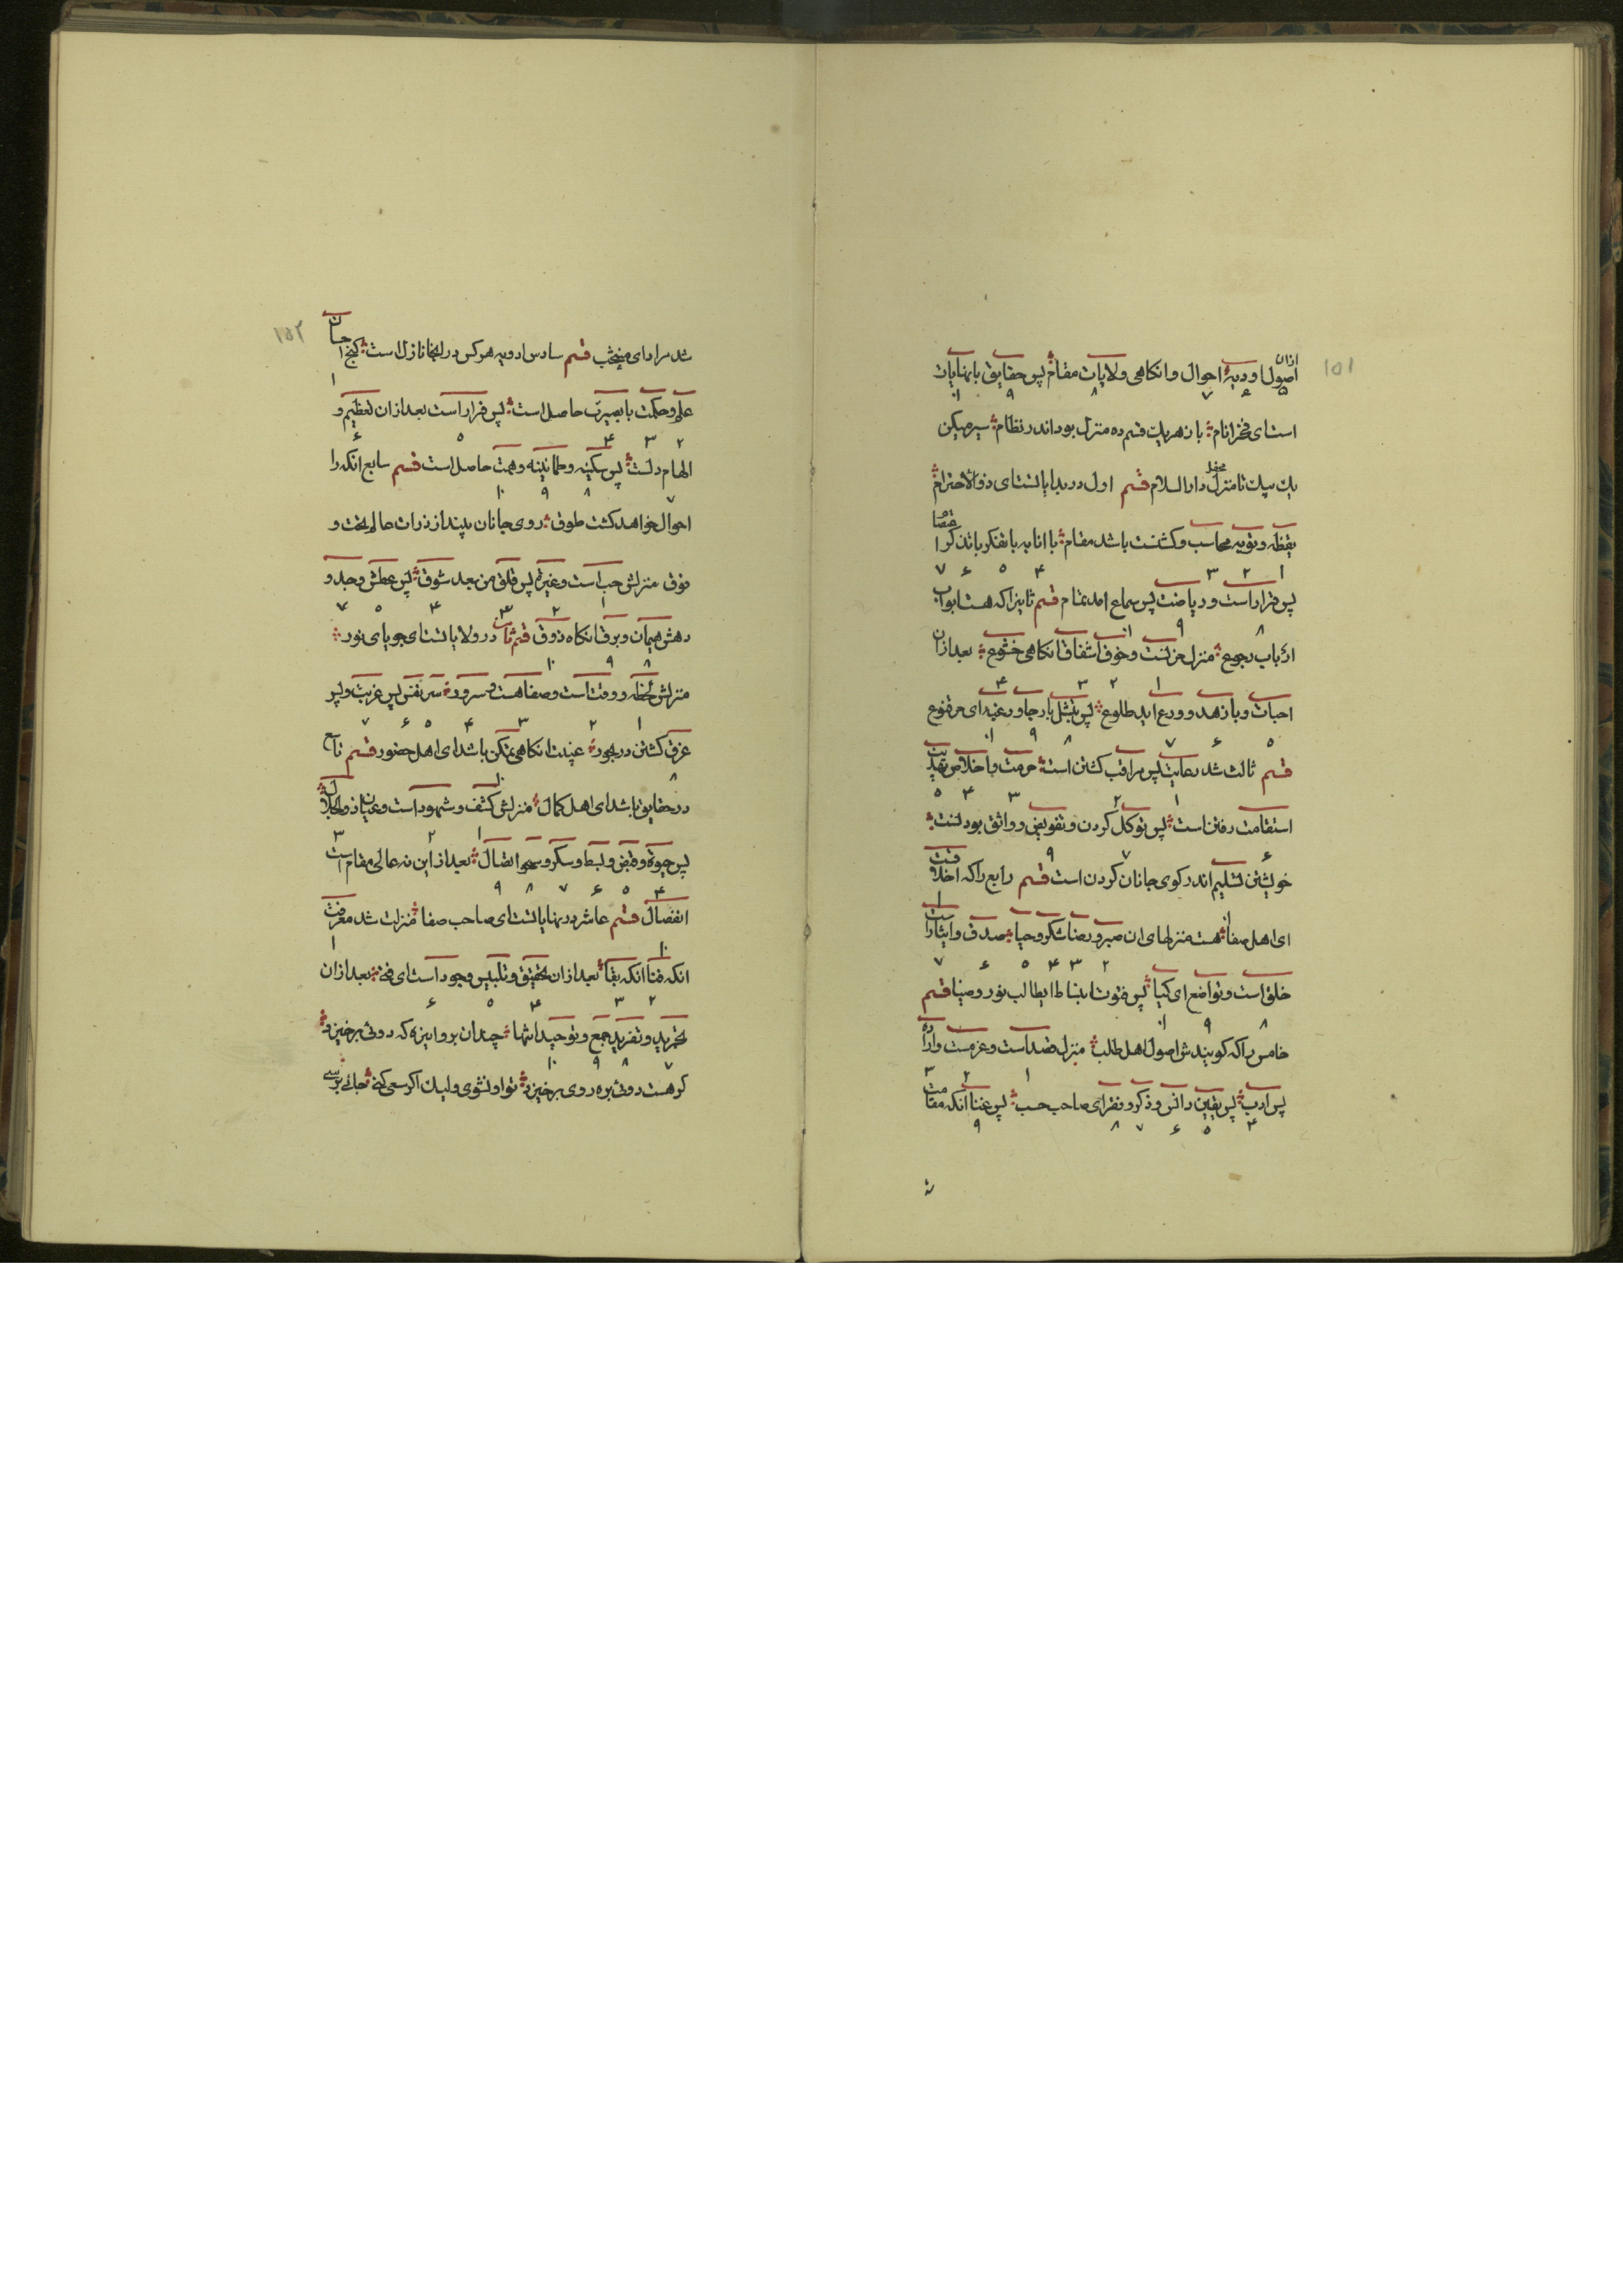 ۱۵۱
ازان
اصول اودیه احوال وانکاهی ولایات مقام پس حقایق با نهایات
۵ ۶ ۷ ۸ ۹ ۱۰
است ای فخر انام باز هریک قسم ده منزل بود اندر نظام سیر میکن
یک بیک تا منزل دار السلام قسم اول در بدایاتست ای ذو الاحترام
یقظه وتوبه محاسب وکشتنت باشد مقام با انابه با تفکر با تذکر اعتصام
۱ ۲ ۳ ۴ ۵ ۶ ۷
پس فرار است وریاضت پس سماع امد تمام قسم ثانیرا که هست ابواب
۸ ۹ ۱۰
ارباب رجوع منزل حزنست وخوف اشفاق انکاهی خشوع بعد ازان
۱ ۲ ۳ ۴
اخبات وبا زهد وورع اید طلوع پس تبتل با رجا ورغبه ای مرفوع
۵ ۶ ۷ ۸ ۹ ۱۰
قسم ثالث شد رعایت پس مراقب کشتن است حرمت وبا خلاص تهذیب
۱ ۲ ۳ ۴ ۵
استقامت رفتن است پس توکل کردن وتفویض وواثق بودنست
۶ ۷ ۹
خویشتن تسلیم اندر کوی جانان کردن است قسم رابع را که اخلاقت
۱
ای اهل صفا هست منزلهای ان صبر ورضا شکر وحیا صدق وایثار است
۲ ۳ ۴ ۵ ۶ ۷
خلق است وتواضع ای کیا پس فتوت انبساط ایطالب نور وضیا قسم
۸ ۹ ۱۰
خامس را که کویندش اصول اهل طلب منزل قصد است وعزمست واراده
۱ ۲ ۳
پس ادب پس یقین وانس وذکر وفقر ای صاحب حسب پس غنا انکه مقامت
۴ ۵ ۶ ۷ ۸ ۹
۱۵۲
شد مراد ای منتجب قسم سادس اودیه هر کس در اینجا نازل است کنج احسان
۱
علم وحکمت با بصیرت حاصل است پس فراراست بعد ازان تعظیم و
۲ ۳ ۴ ۵ ۶
الهام دلست پس سکینه وطمانینه وهمت حاصل است قسم سابع انکه را
۷ ۸ ۹ ۱۰
احوال خواهد کشت طوق روی جانان بیند از ذرات عالم تحت و
فوق منزلش حب است وغیرة پس قلق من بعد شوق پس عطش وجد و
۱ ۲ ۳ ۴ ۵ ۷
دهش هیمان وبرق انکاه ذوق قسم ثامن در ولایاتست ای جویای نور
۸ ۹ ۱۰
منزلش لحظه ووقت است وصفا هست وسرور سر نفس پس غربت وپس
۱ ۲ ۳ ۴ ۵ ۶ ۷
غرق کشتن در بحور غیبت انکاهی تمکن باشد ای اهل حضور قسم تاسع
۸ ۱۰
در حقایق باشد ای اهل کمال منزلش کشف وشهود است وعیان ذو الجلال
۱ ۲ ۳
پس حیوة وقبض وبسط وسکر وصحو اتصال بعد از این نه عالی مقام است
۴ ۵ ۶ ۷ ۸ ۹
انفصال قسم عاشر در نهایاتست ای صاحب صفا منزلت شد معرفت
۱۰ ۱
انکه فنا انکه بقا بعد ازان تحقیق وتلبیس وجود است ای فتی بعد ازان
۲ ۳ ۴ ۵ ۶
تجرید وتفرید جمع وتوحید انتها چندان برو اینره که دوئی برخیزد
۷ ۸ ۹ ۱۰
کر هست دوئی بره روی برخیزد تو او نشوی ولیک اکر سعی کنی جائی برسی